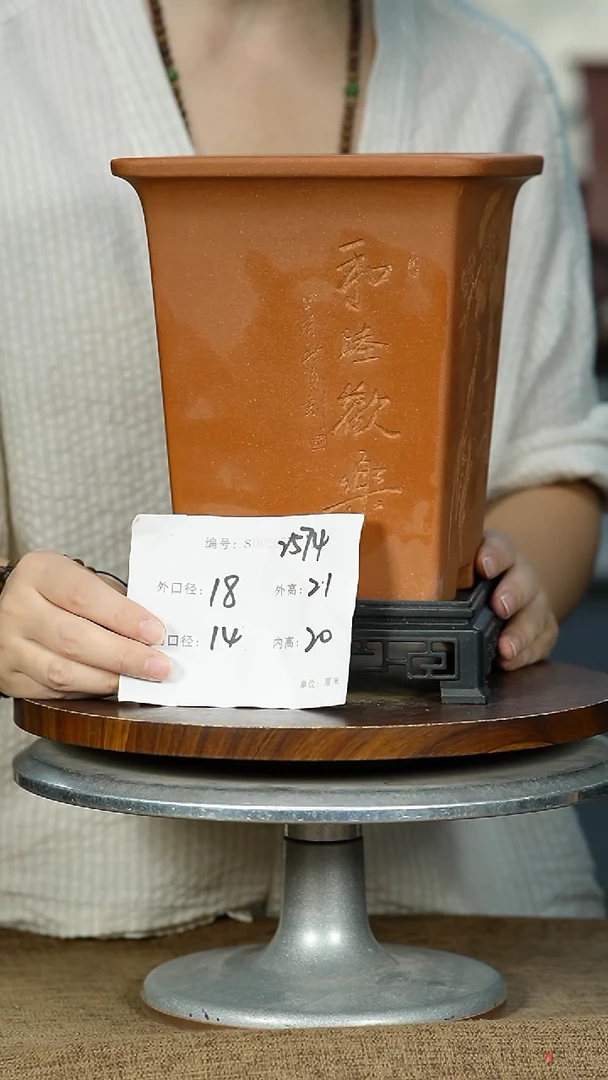 和睦歡樂
编号：S 2574
外口径：18 外高：21
口径：14 内高：20
单位：厘米